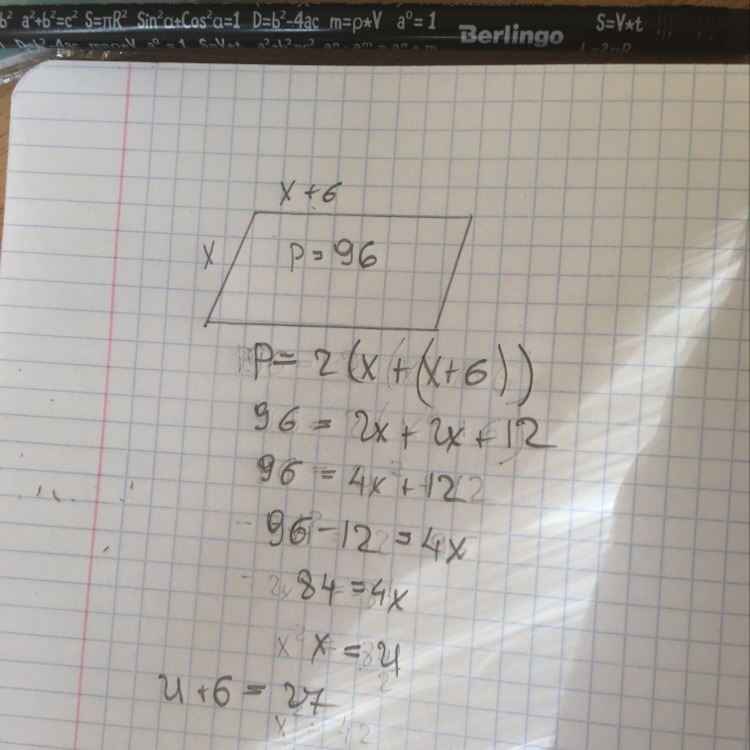 b² a²+b²=c² S=πR² Sin²α+Cos²α=1 D=b²-4ac m=ρ*V a⁰=1 Berlingo S=V*t
x+6
x
P=96
P=2(x+(x+6))
96=2x+2x+12
96=4x+12
96-12=4x
84=4x
x=21
21+6=27